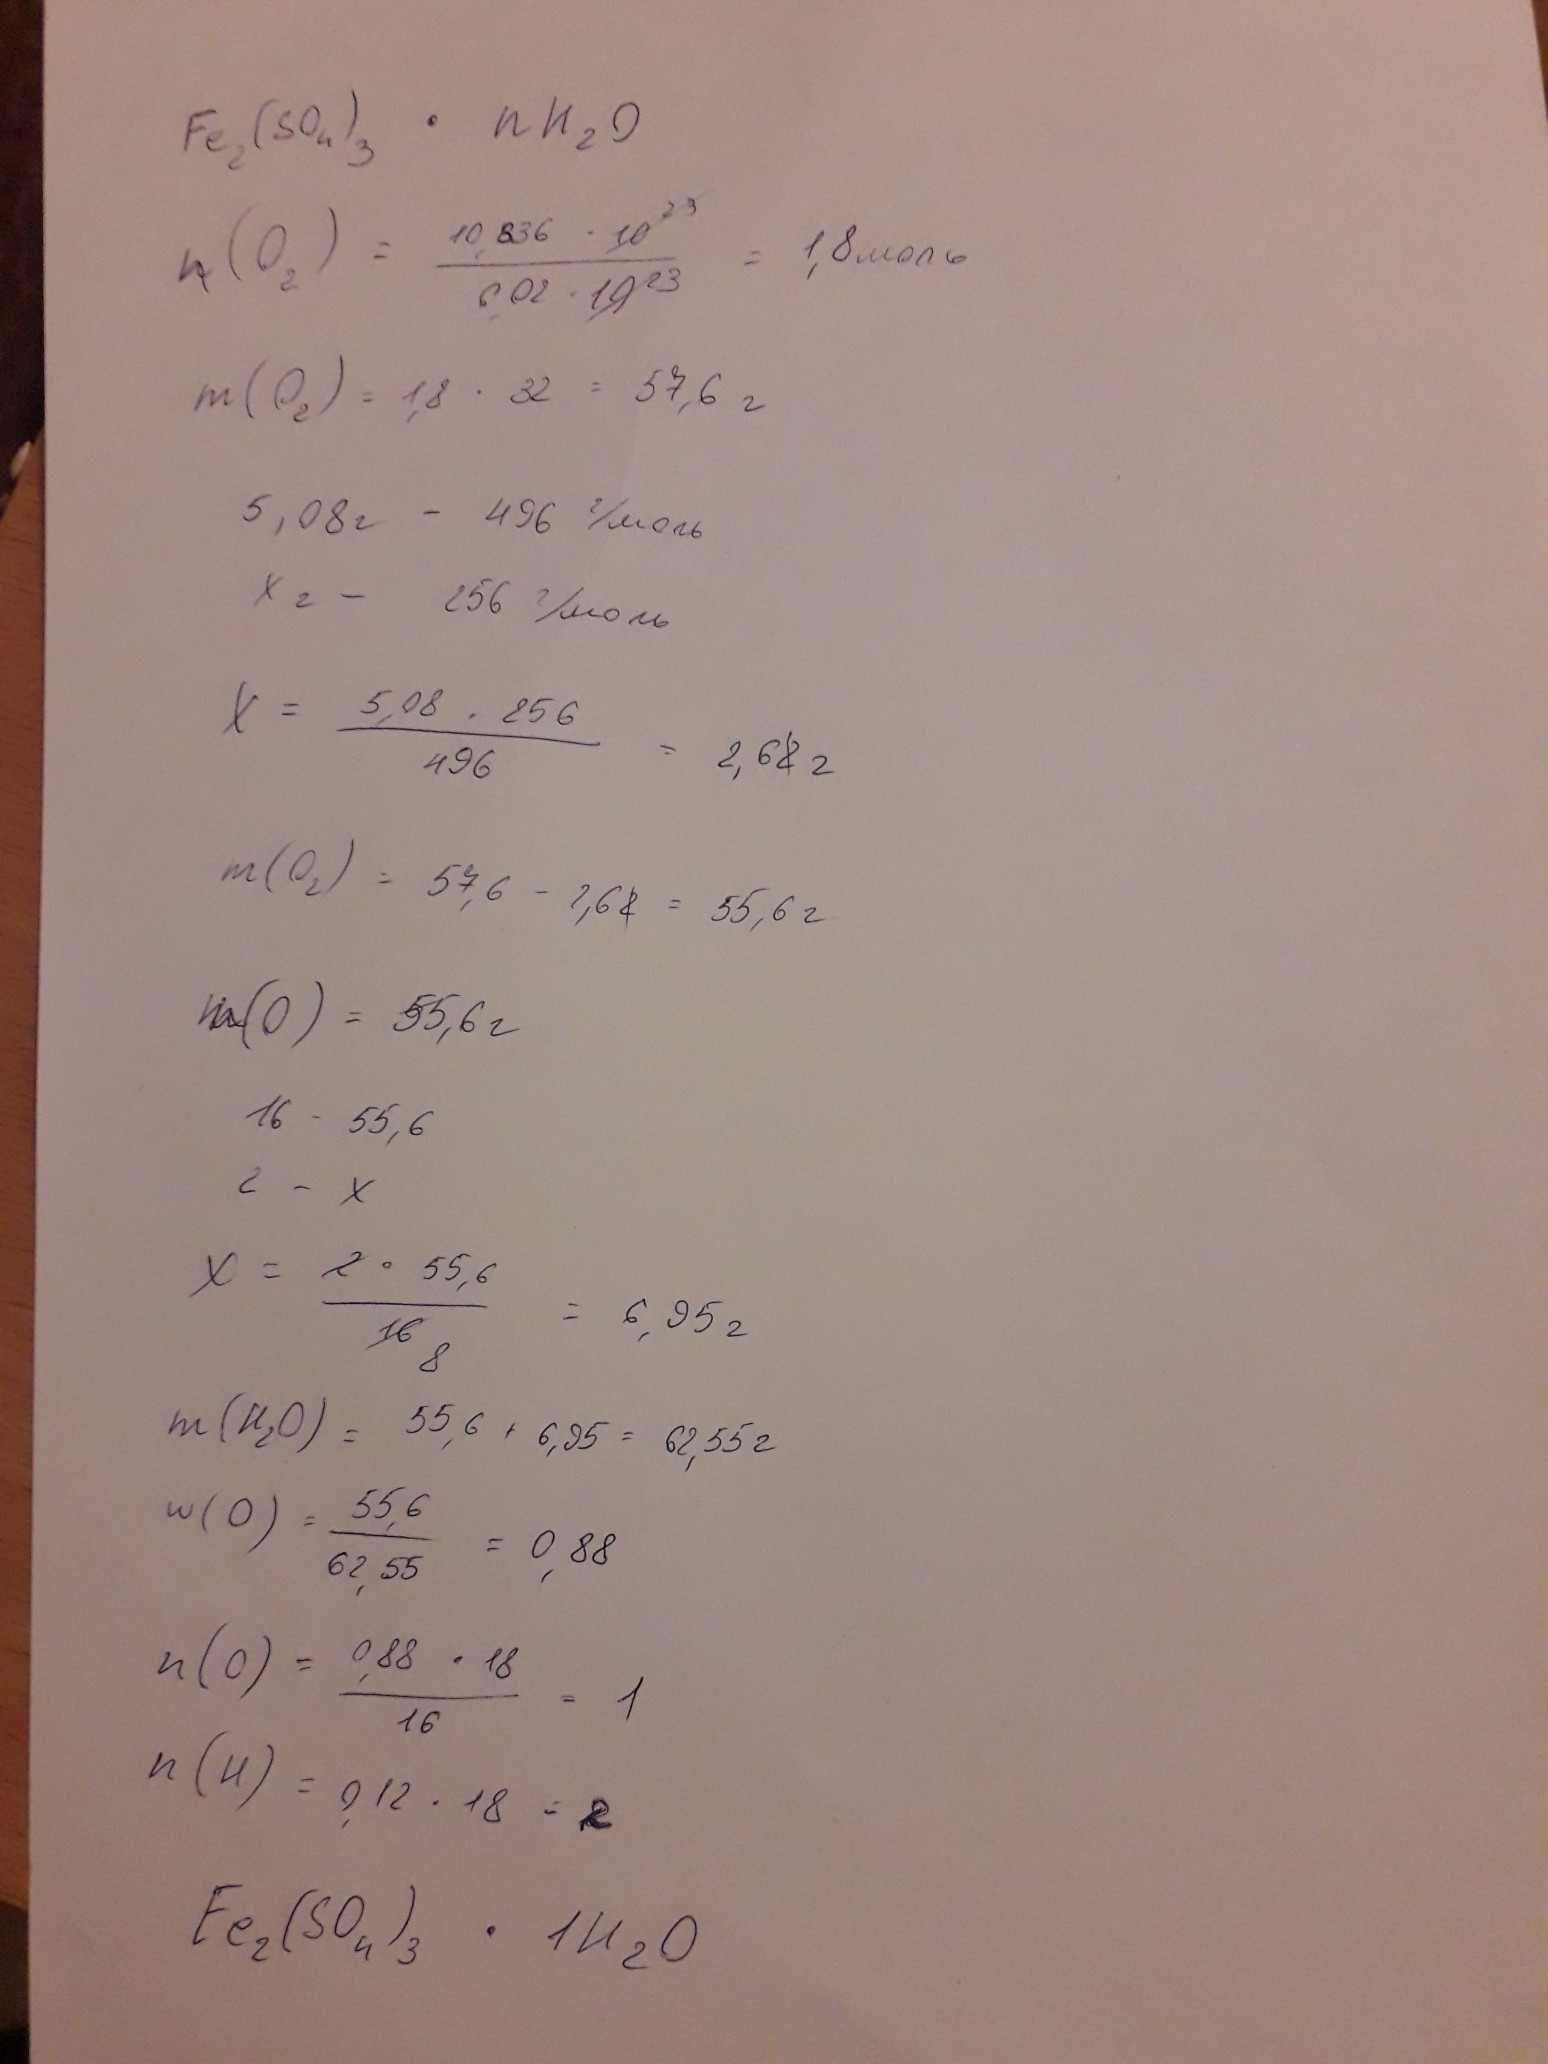 Fe₂(SO₄)₃ · nH₂O
n(O₂) = 10,836 · 10²³ / 6,02 · 10²³ = 1,8 моль
m(O₂) = 1,8 · 32 = 57,6 г
5,08 г - 496 г/моль
x г - 256 г/моль
X = 5,08 · 256 / 496 = 2,62 г
m(O₂) = 57,6 - 2,62 = 55,6 г
m(O) = 55,6 г
16 - 55,6
2 - x
X = 2 · 55,6 / 16 8 = 6,95 г
m(H₂O) = 55,6 + 6,95 = 62,55 г
w(O) = 55,6 / 62,55 = 0,88
n(O) = 0,88 · 18 / 16 = 1
n(H) = 0,12 · 18 = 2
Fe₂(SO₄)₃ · 1H₂O